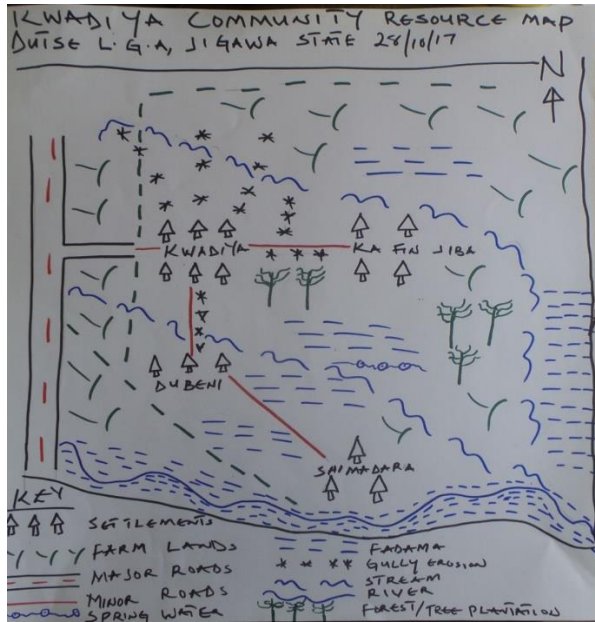 KWADIYA COMMUNITY RESOURCE MAP
DUTSE L.G.A, JIGAWA STATE 28/10/17
N
KWADIYA
KAFIN JIBA
DUBENI
SHIMADARA
KEY
SETTLEMENTS
FARM LANDS
MAJOR ROADS
MINOR ROADS
SPRING WATER
FADAMA
GULLY EROSION
STREAM
RIVER
FOREST/TREE PLANTATION